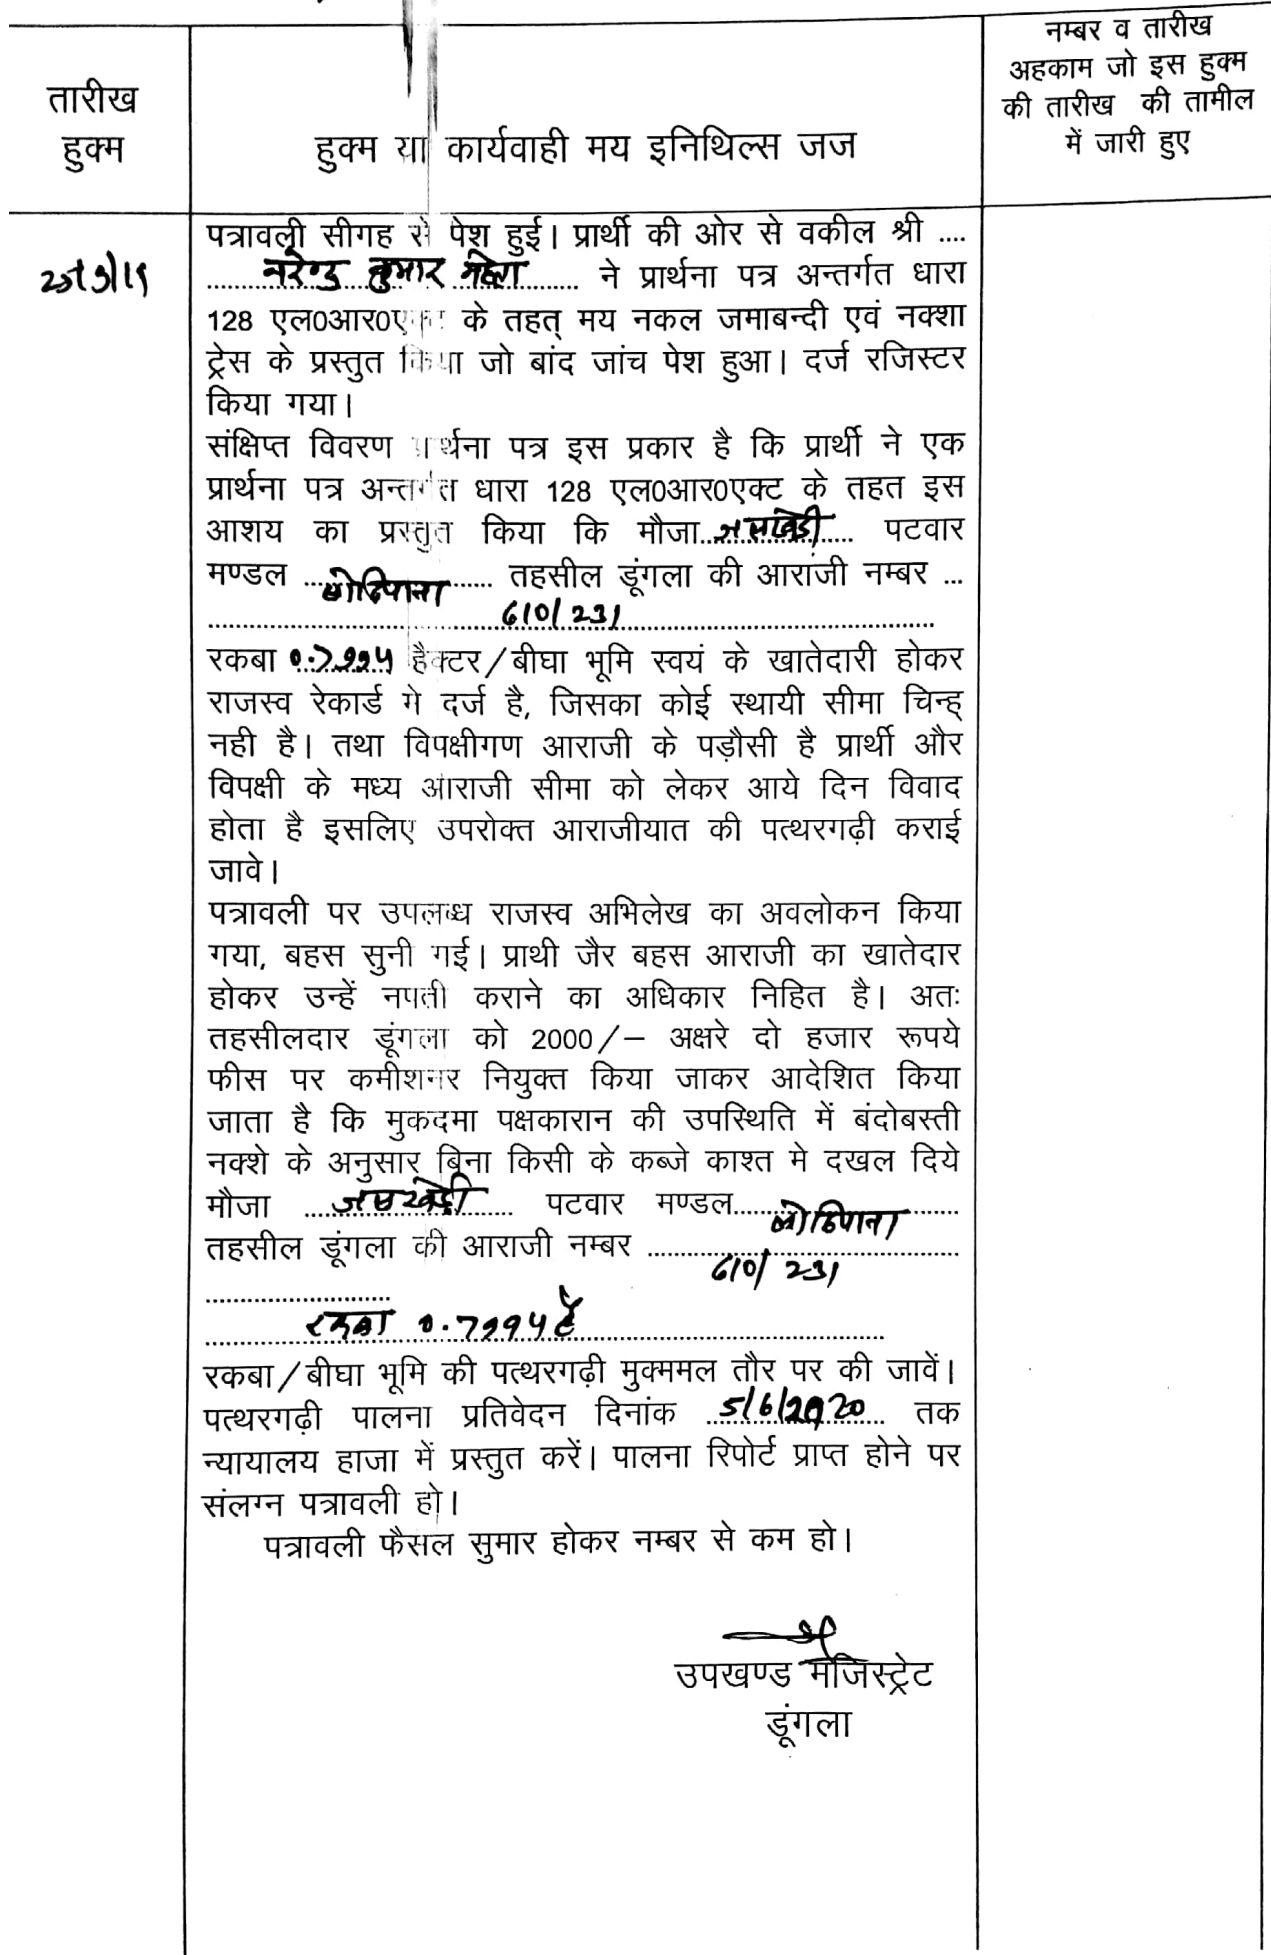 तारीख
हुक्म
हुक्म या कार्यवाही मय इनिथिल्स जज
नम्बर व तारीख
अहकाम जो इस हुक्म
की तारीख की तामील
में जारी हुए
पत्रावली सीगह से पेश हुई। प्रार्थी की ओर से वकील श्री ....
नरेन्द्र कुमार ने प्रार्थना पत्र अन्तर्गत धारा
128 एल0आर0एक्ट के तहत् मय नकल जमाबन्दी एवं नक्शा
ट्रेस के प्रस्तुत किया जो बांद जांच पेश हुआ। दर्ज रजिस्टर
किया गया।
संक्षिप्त विवरण प्रार्थना पत्र इस प्रकार है कि प्रार्थी ने एक
प्रार्थना पत्र अन्तर्गत धारा 128 एल0आर0एक्ट के तहत इस
आशय का प्रस्तुत किया कि मौजा पटवार
मण्डल तहसील डूंगला की आरांजी नम्बर ...
610/231
रकबा 0.7994 हैक्टर/बीघा भूमि स्वयं के खातेदारी होकर
राजस्व रेकार्ड मे दर्ज है, जिसका कोई स्थायी सीमा चिन्ह्
नही है। तथा विपक्षीगण आराजी के पड़ौसी है प्रार्थी और
विपक्षी के मध्य आराजी सीमा को लेकर आये दिन विवाद
होता है इसलिए उपरोक्त आराजीयात की पत्थरगढ़ी कराई
जावे।
पत्रावली पर उपलब्ध राजस्व अभिलेख का अवलोकन किया
गया, बहस सुनी गई। प्राथी जैर बहस आराजी का खातेदार
होकर उन्हें नपती कराने का अधिकार निहित है। अतः
तहसीलदार डूंगला को 2000/– अक्षरे दो हजार रूपये
फीस पर कमीशनर नियुक्त किया जाकर आदेशित किया
जाता है कि मुकदमा पक्षकारान की उपस्थिति में बंदोबस्ती
नक्शे के अनुसार बिना किसी के कब्जे काश्त मे दखल दिये
मौजा पटवार मण्डल
तहसील डूंगला की आराजी नम्बर
610/231
रकबा 0.7994 है
रकबा/बीघा भूमि की पत्थरगढ़ी मुक्ममल तौर पर की जावें।
पत्थरगढ़ी पालना प्रतिवेदन दिनांक 5/6/2020 तक
न्यायालय हाजा में प्रस्तुत करें। पालना रिपोर्ट प्राप्त होने पर
संलग्न पत्रावली हो।
पत्रावली फैसल सुमार होकर नम्बर से कम हो।
उपखण्ड मजिस्ट्रेट
डूंगला